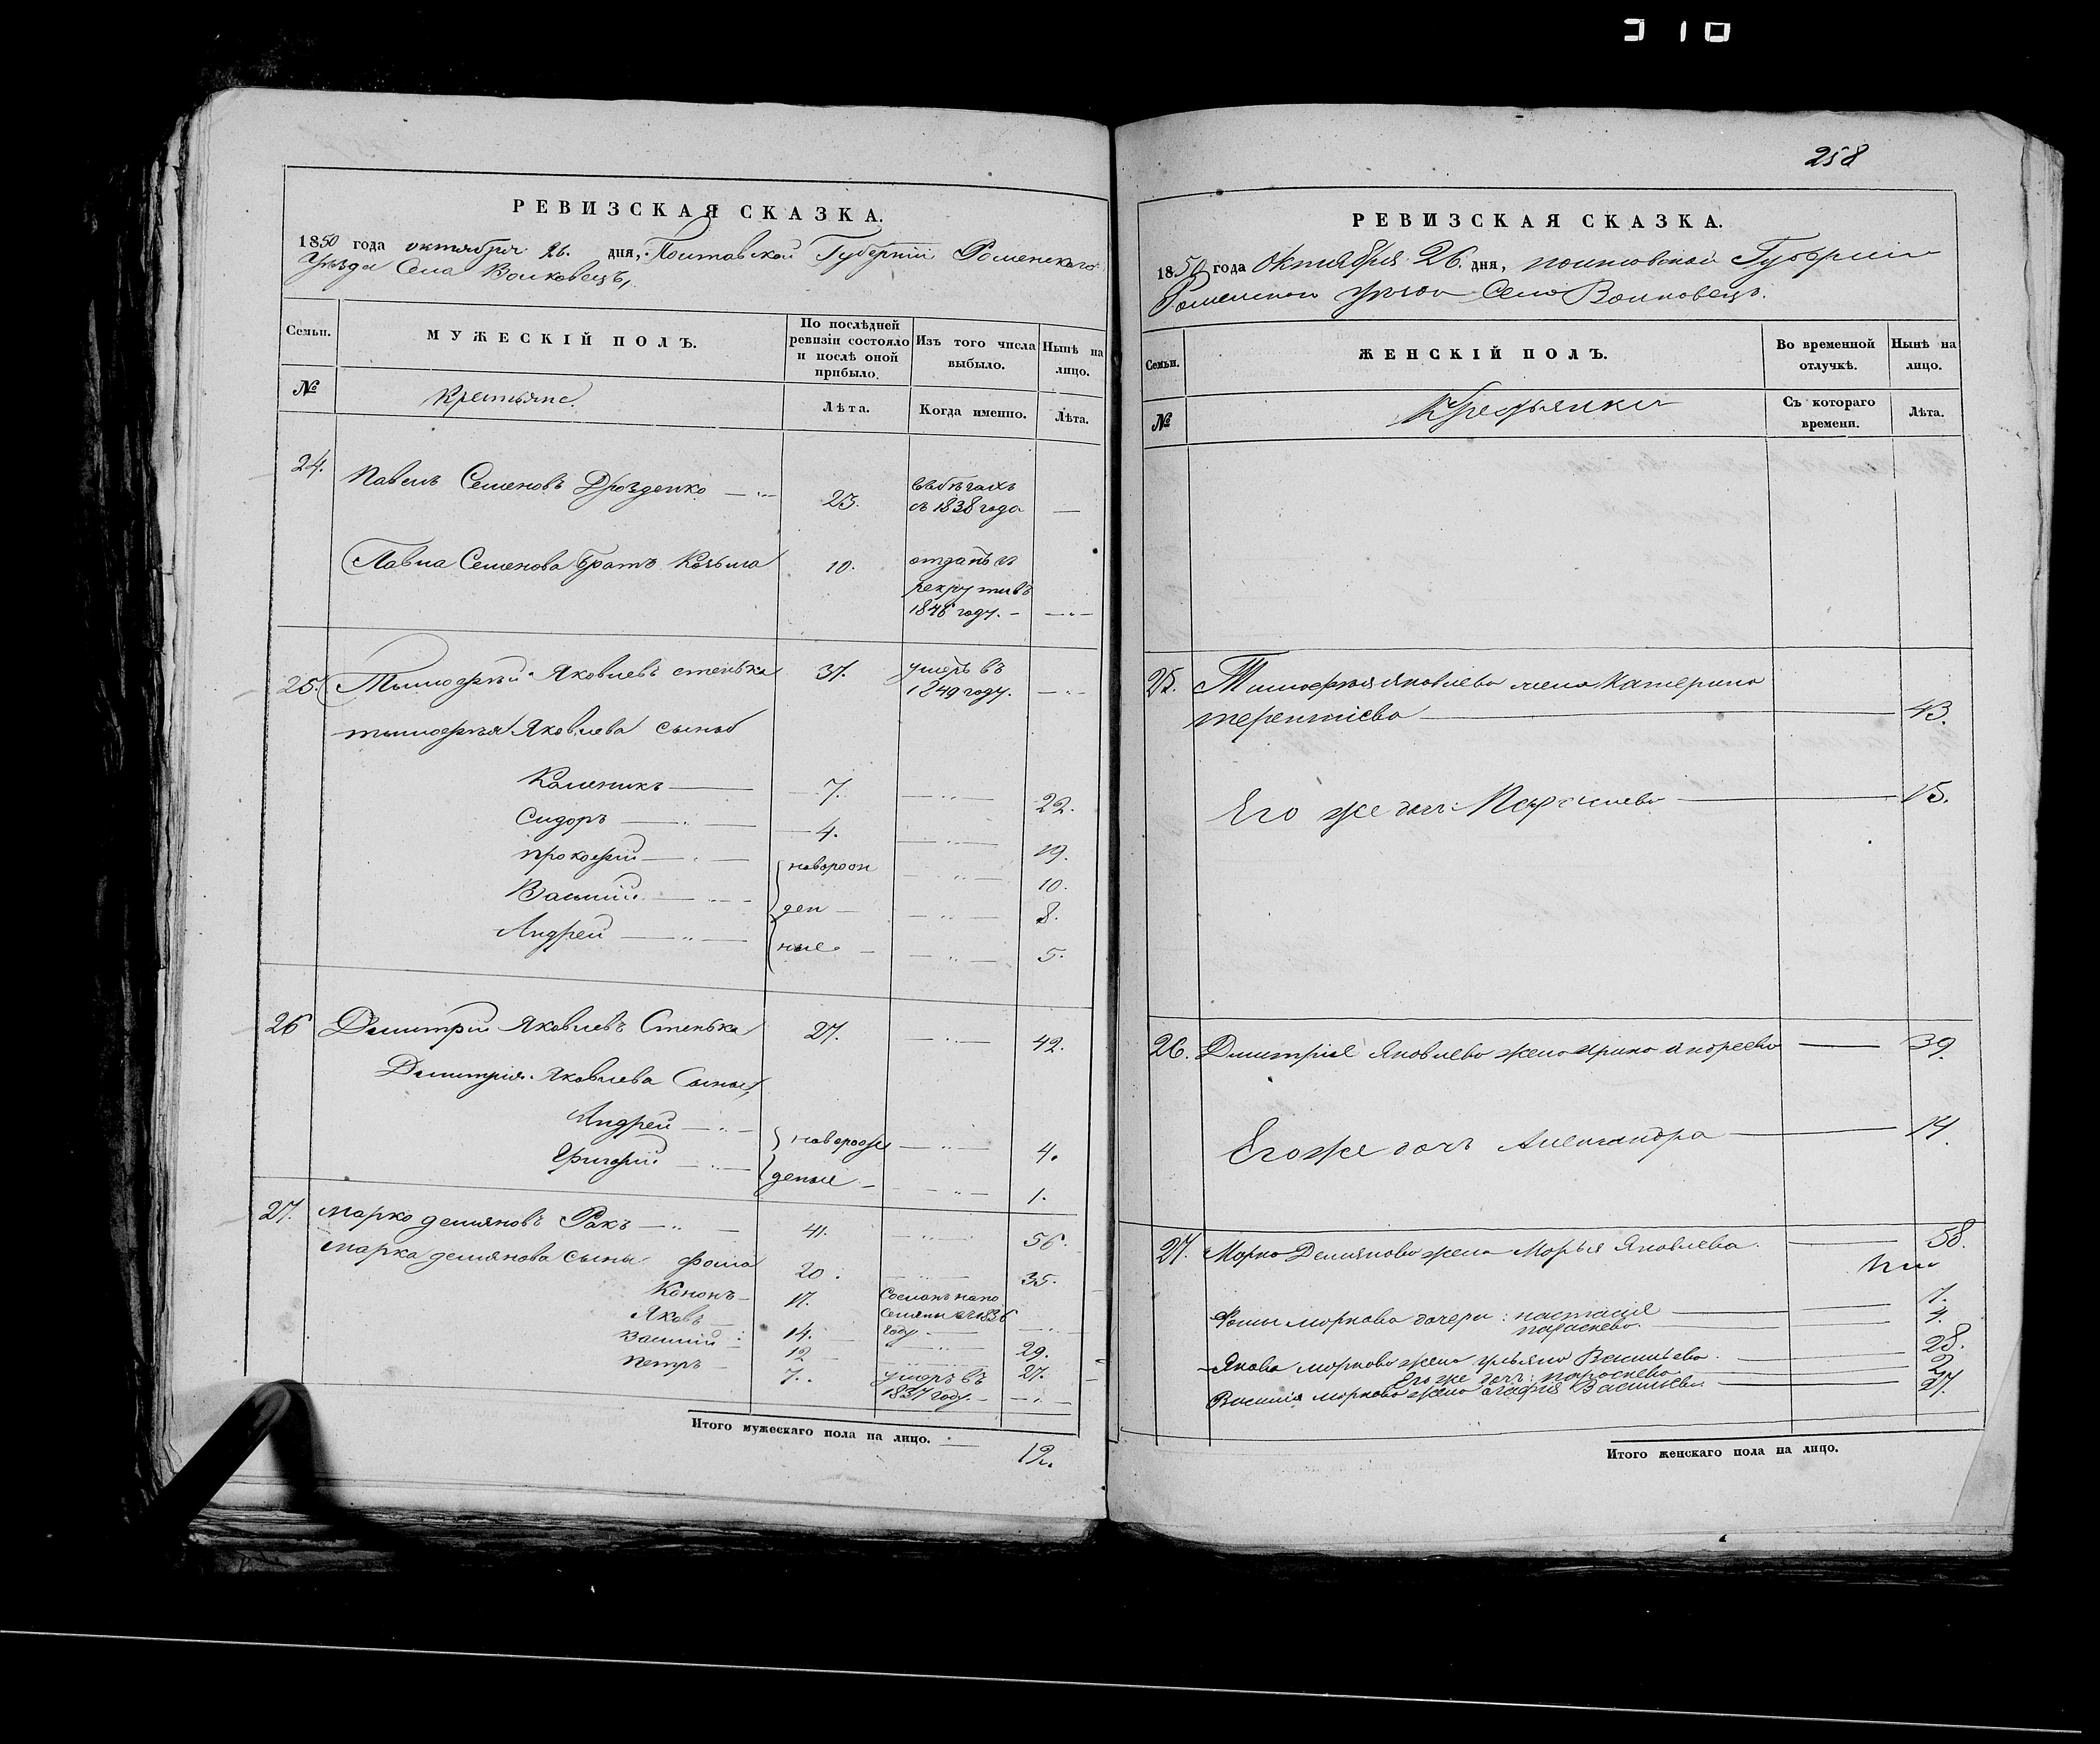 310
РЕВИЗСКАЯ СКАЗКА.
1850 года октября 26. дня, Полтавской Губернии Роменского
Уезда Села Волковецъ,
Семьи.
МУЖЕСКІЙ ПОЛЪ.
По послѣдней ревизіи состояло и послѣ оной прибыло.
Изъ того числа выбыло.
Нынѣ на лицо.
№
Крестьяне.
Лѣта.
Когда именно.
Лѣта.
24. Павелъ Семеновъ Дрозденко 23. въ бѣгахъ
съ 1838 года
Павла Семенова братъ Козьма 10. отданъ въ
рекруты въ
184 году.
25. Тимофѣй Яковлевъ стенька 37. умеръ въ
1849 году.
тимофѣя Яковлева сыновья
Каленикъ 7. 22.
Сидоръ 4. 19.
прокофій новорож 10.
Василій ден 8.
Андрей ные 5.
26 Димитрій Яковлевъ Стенька 27. 42.
Димитрія Яковлева Сыны,
Андрей новорож 4.
Григорій деные 1.
27. Марко демяновъ Ракъ 41. 56.
Марка демянова сыны фома 20. 35.
Кононъ 17. Сосланъ на по
селение въ 1836
Яковъ 14. году 29.
Василій 12 27.
петръ 7. умеръ въ
1837 году.
Итого мужескаго пола на лицо. 12.
258
РЕВИЗСКАЯ СКАЗКА.
1850 года Октября 26. дня, полтовской Губернии
Роменского уезда Села Волковецъ.
Семьи.
ЖЕНСКІЙ ПОЛЪ.
Во временной отлучкѣ.
Нынѣ на лицо.
№
Крестьянки
Съ котораго времени.
Лѣта.
25. Тимофея Яковлева жена Катерина
терентиева 43.
Его же дочь 15.
26. Дмитрия Яковлева жена ирина андреева 39.
Его же дочь Александра 14.
27. Марка Демянова жена Марья Яковлева 58.
Фомы маркова дочери: настасия 7.
параскева. 4.
Якова маркова жена ульяна Васильева 28.
Его же дочь: параскева 2
Василия маркова жена агафия Васильева 27.
Итого женскаго пола на лицо.